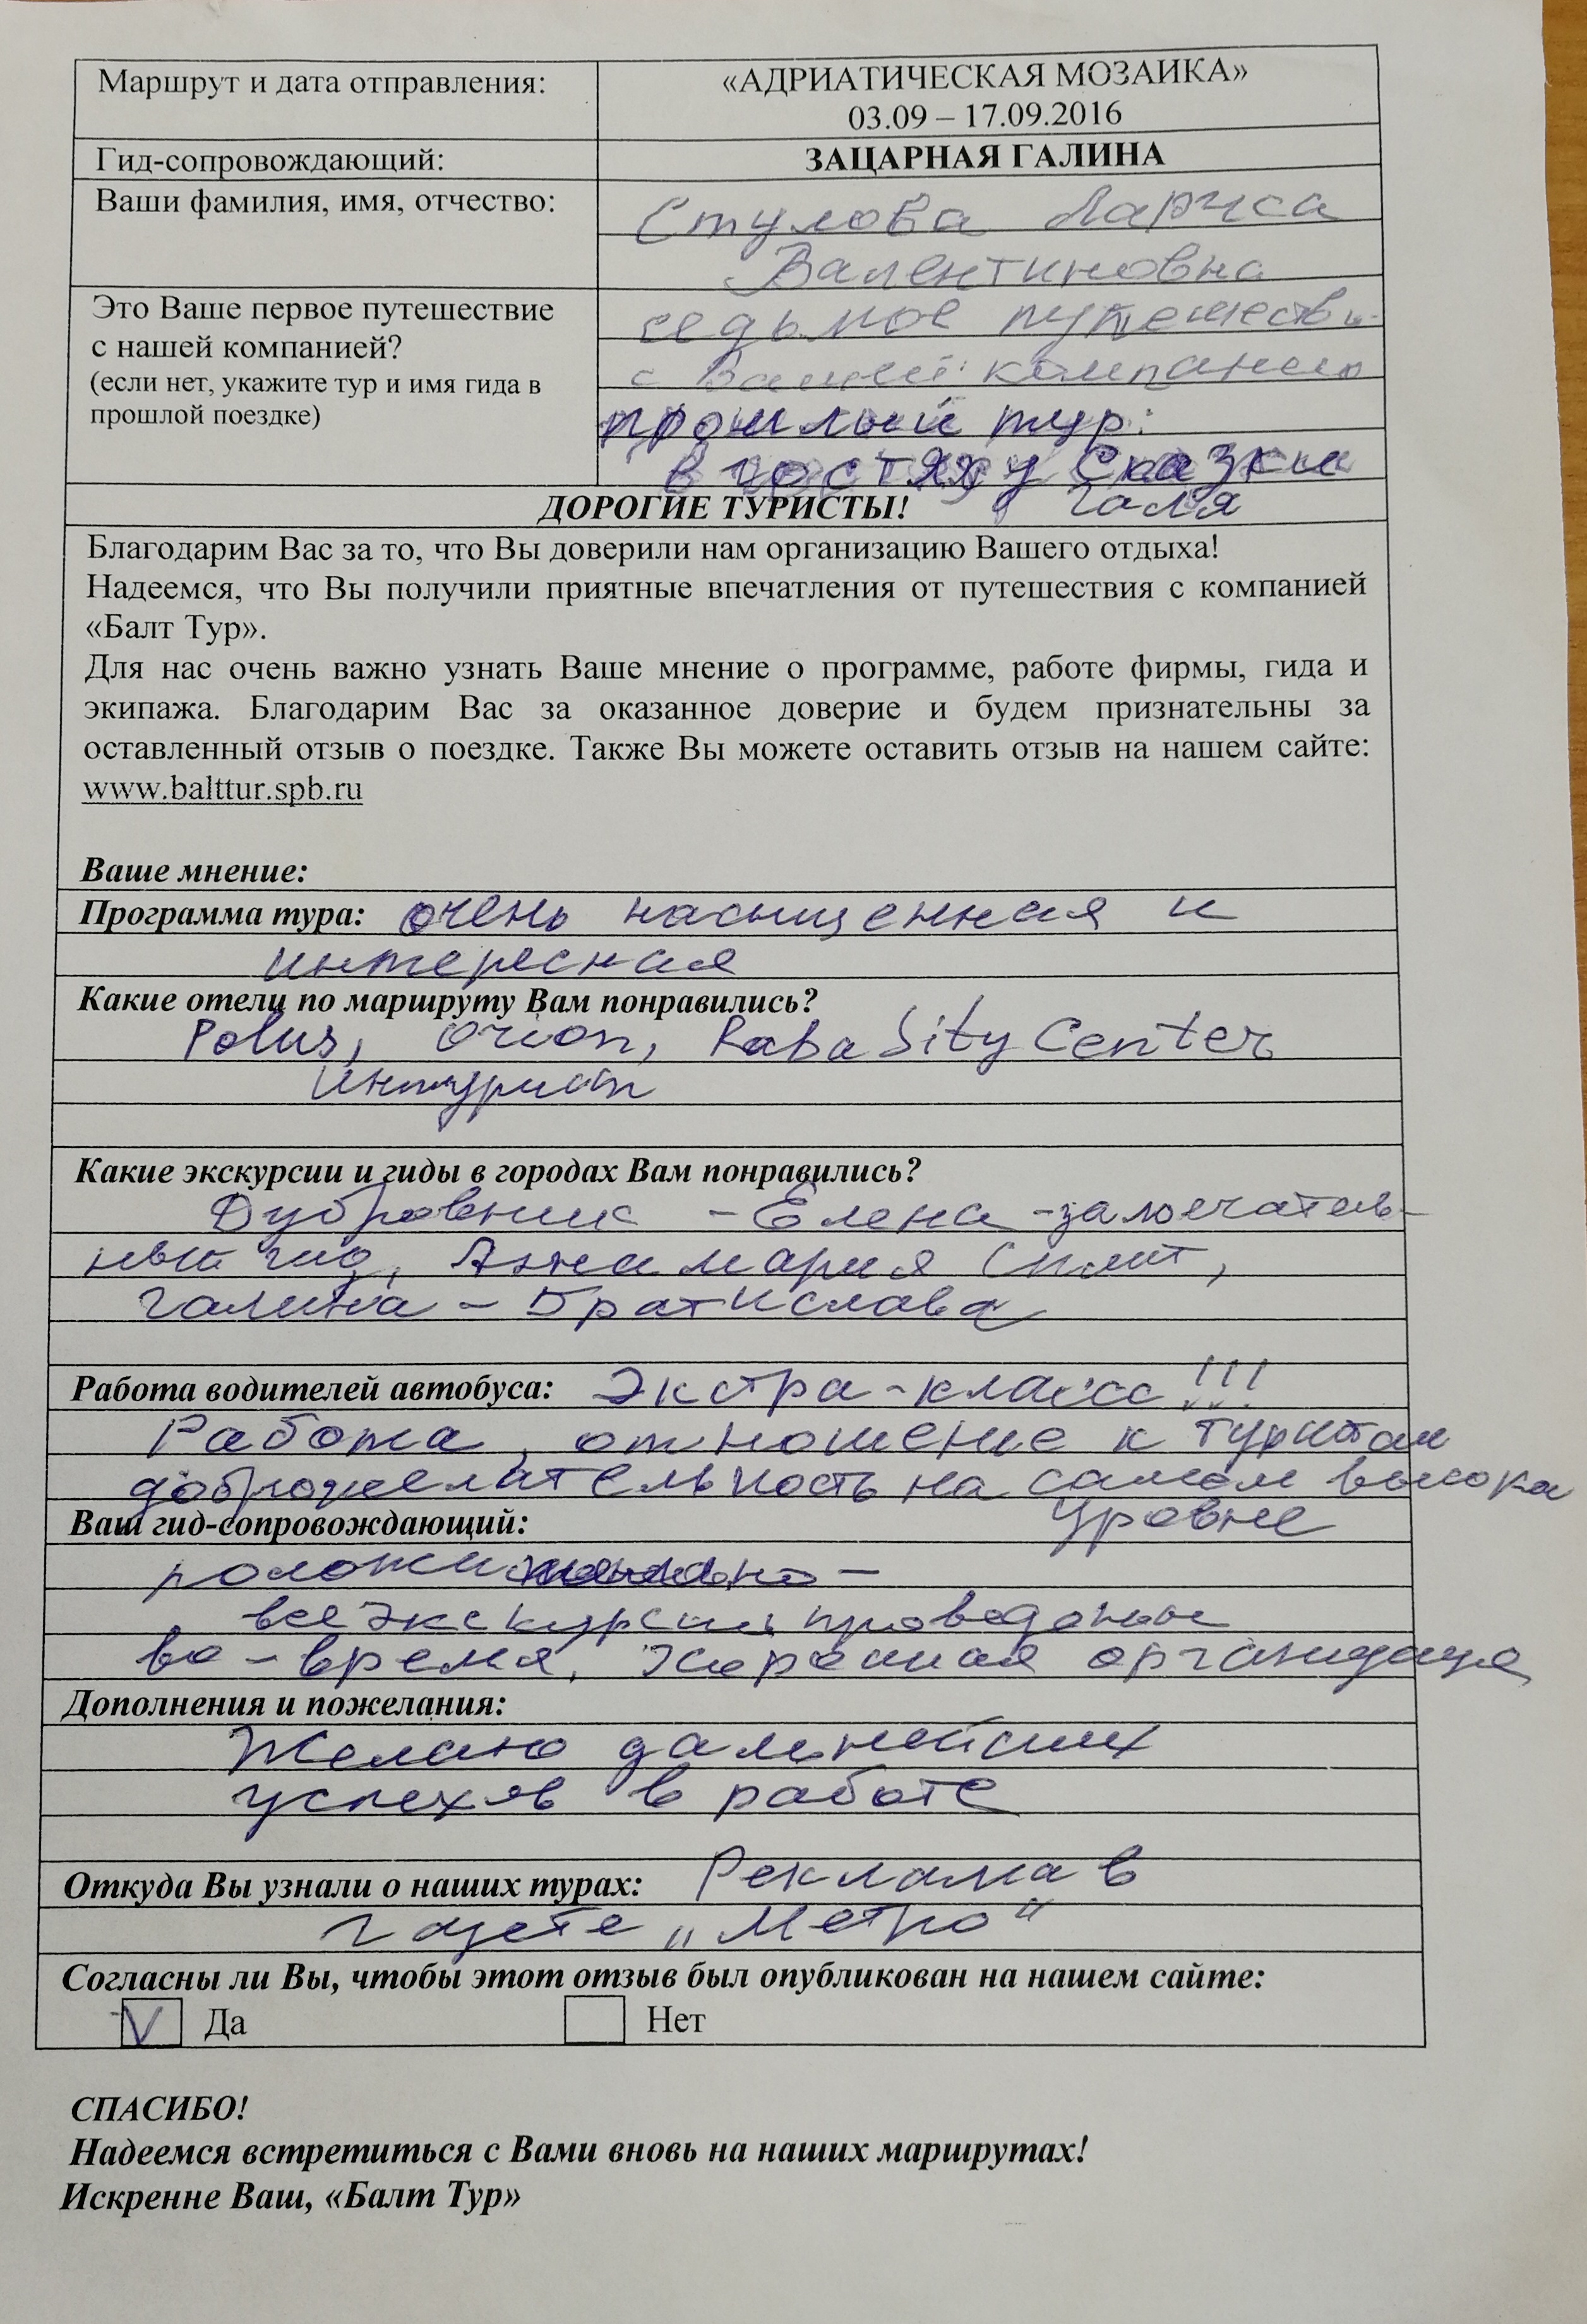 Маршрут и дата отправления:
«АДРИАТИЧЕСКАЯ МОЗАИКА»
03.09 – 17.09.2016
Гид-сопровождающий:
ЗАЦАРНАЯ ГАЛИНА
Ваши фамилия, имя, отчество:
Стулова Лариса
Валентиновна
Это Ваше первое путешествие
с нашей компанией?
(если нет, укажите тур и имя гида в
прошлой поездке)
седьмое путешестви
с Вашей компанией
прошлый тур:
в гостях у сказки
Галя
ДОРОГИЕ ТУРИСТЫ!
Благодарим Вас за то, что Вы доверили нам организацию Вашего отдыха!
Надеемся, что Вы получили приятные впечатления от путешествия с компанией
«Балт Тур».
Для нас очень важно узнать Ваше мнение о программе, работе фирмы, гида и
экипажа. Благодарим Вас за оказанное доверие и будем признательны за
оставленный отзыв о поездке. Также Вы можете оставить отзыв на нашем сайте:
www.balttur.spb.ru
Ваше мнение:
Программа тура: очень насыщенная и
интересная
Какие отели по маршруту Вам понравились?
Polus, Orion, Raba Sity Center
Интурист
Какие экскурсии и гиды в городах Вам понравились?
Дубровник - Елена - замечатель-
ный гид, Анна Мария Сплит,
Галина - Братислава
Работа водителей автобуса: Экстра-класс!!!
Работа, отношение к туристам
доброжелательность на самом высока
уровне
Ваш гид-сопровождающий:
положительно -
все экскурсии проведены
во-время. Хорошая организация
Дополнения и пожелания:
Желаю дальнейших
успехов в работе
Откуда Вы узнали о наших турах: Реклама в
газете „Метро“
Согласны ли Вы, чтобы этот отзыв был опубликован на нашем сайте:
V Да Нет
СПАСИБО!
Надеемся встретиться с Вами вновь на наших маршрутах!
Искренне Ваш, «Балт Тур»